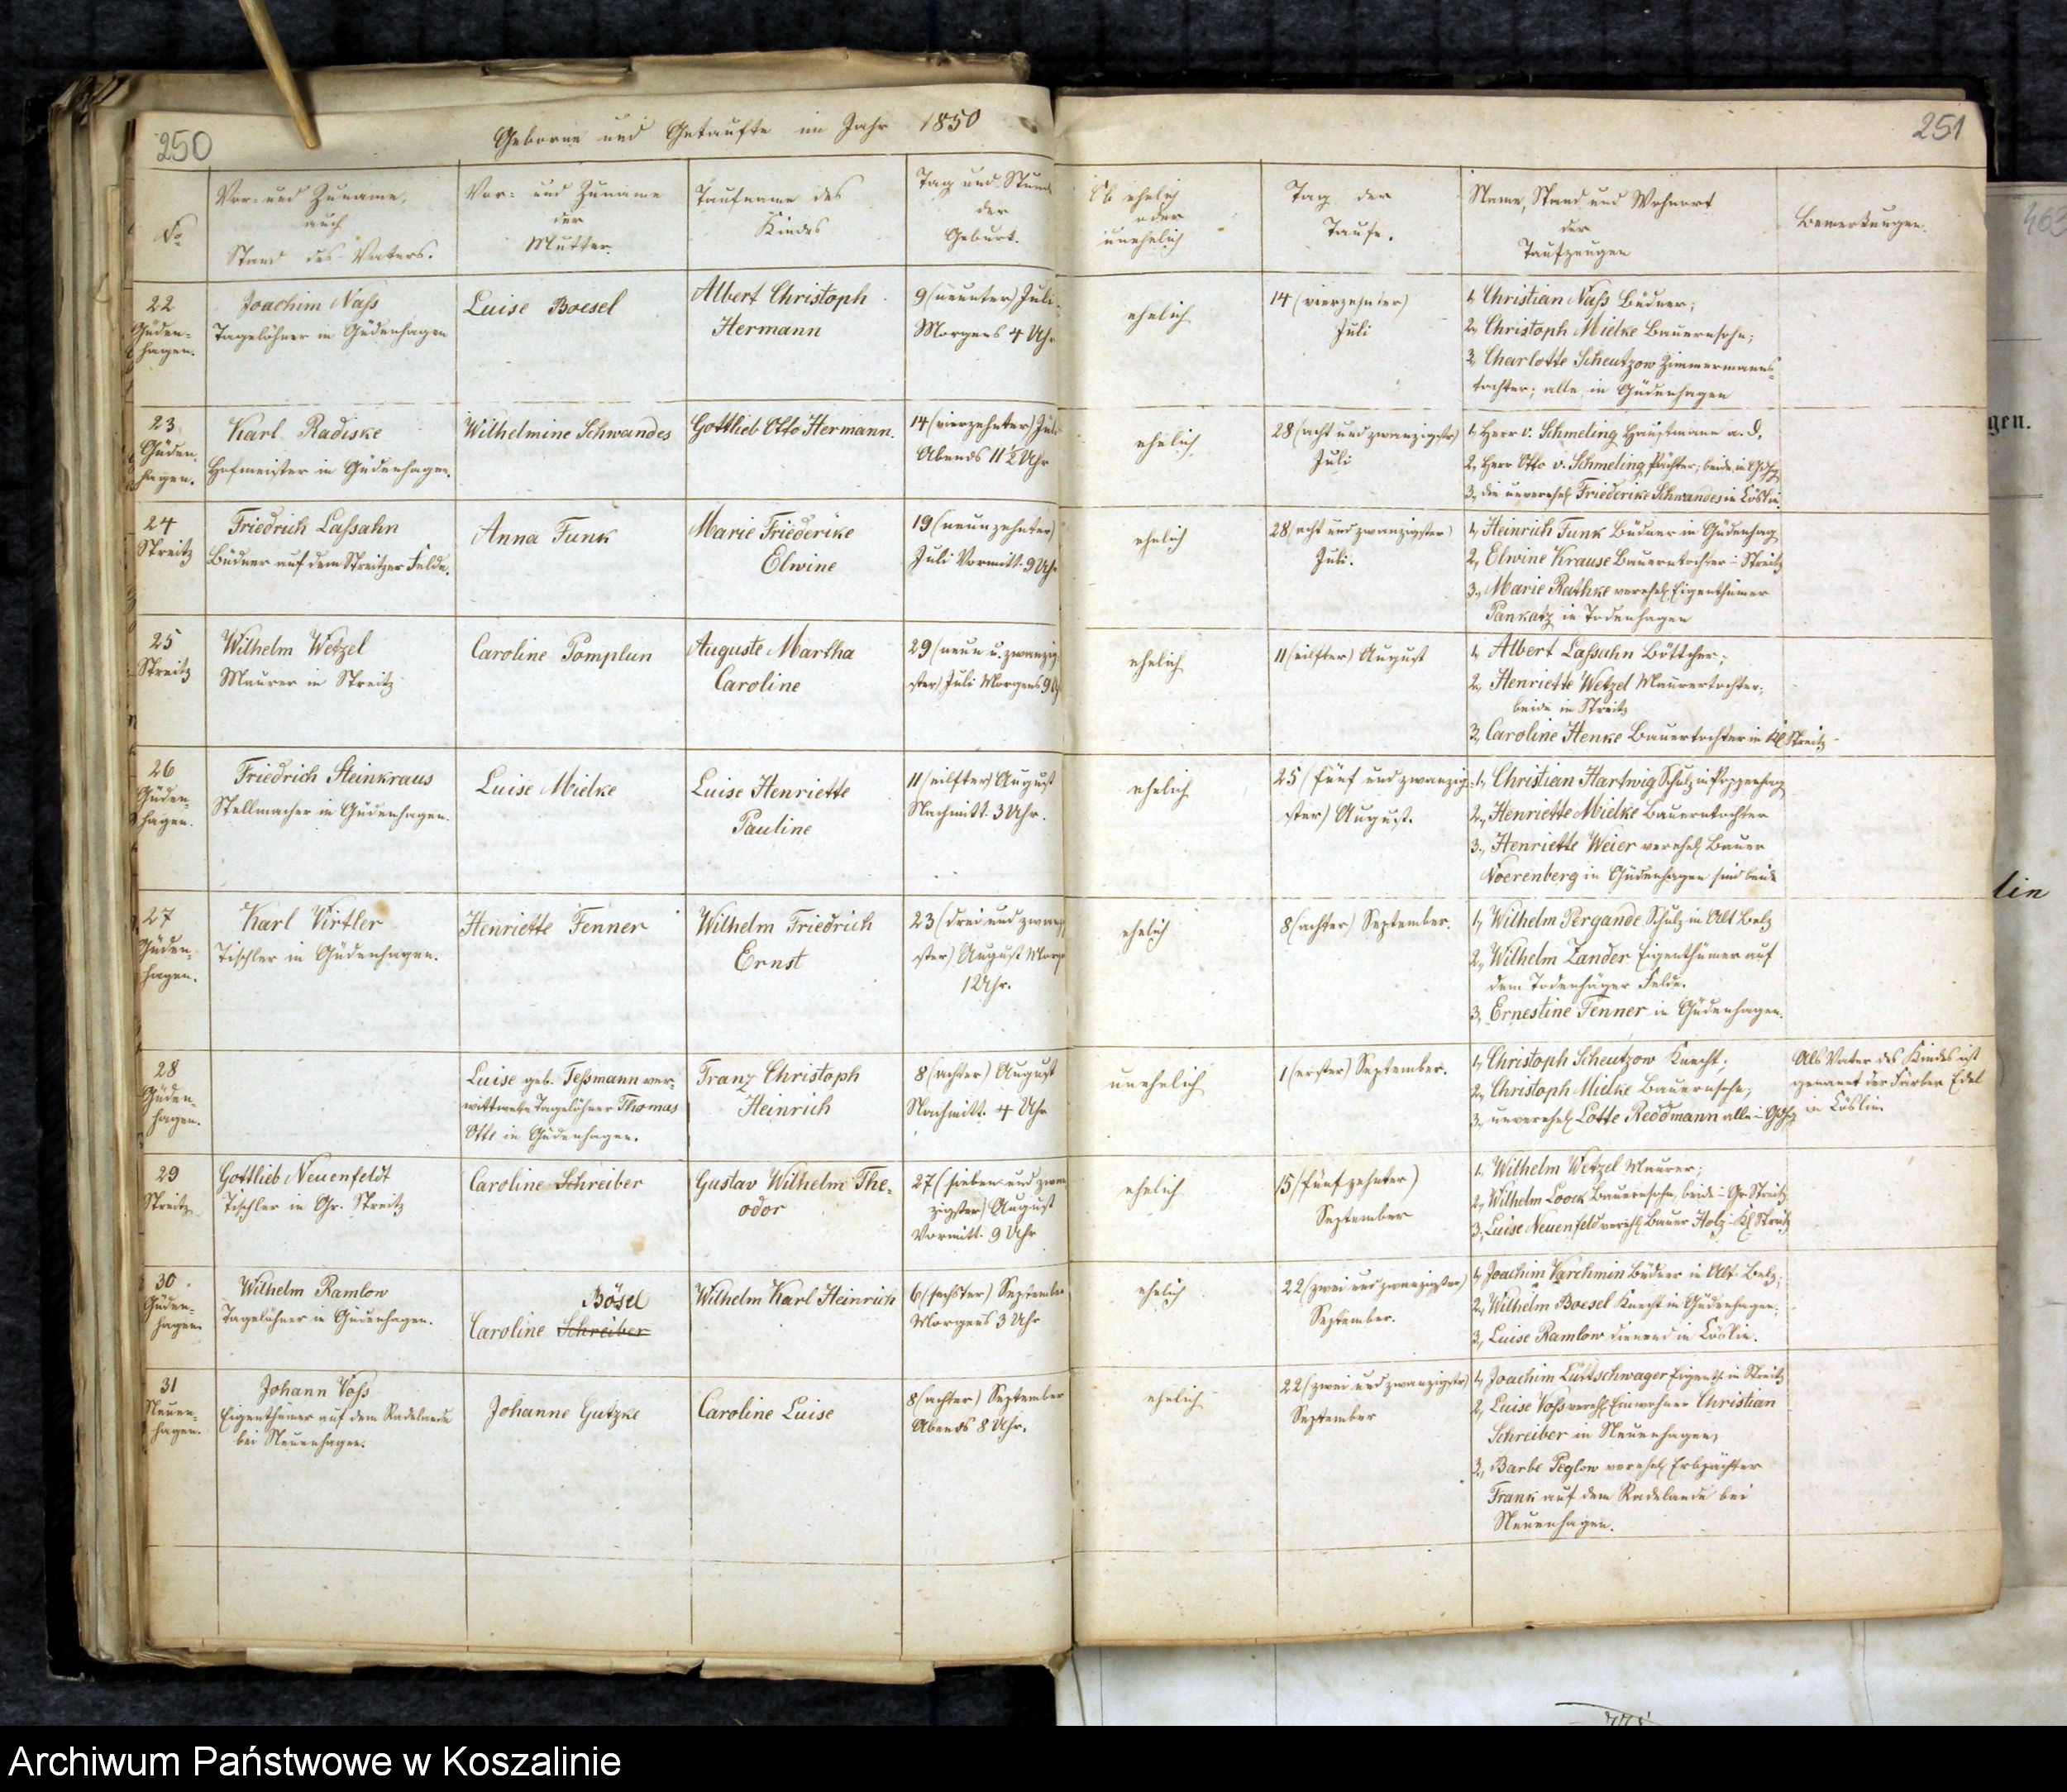 250
Geborne und Getaufte im Jahr 1850
No
Vor- und Zuname,
auch
Stand des Vaters.
Vor- und Zuname
der
Mutter.
Taufname des
Kindes
Tag und Stunde
der
Geburt.
22
Güden-
hagen.
Joachim Naß
Tagelöhner in Güdenhagen
Luise Boesel
Albert Christoph
Hermann
9 (neunter) Juli
Morgens 4 Uhr
23
Güden-
hagen.
Karl Radiske
Hofmeister in Güdenhagen.
Wilhelmine Schwandes
Gottlieb Otto Hermann.
14 (vierzehnter) Juli
Abends 11½ Uhr
24
Streitz
Friedrich Laßahn
Büdner auf dem Streitzer Felde.
Anna Funk
Marie Friederike
Elwine
19 (neunzehnter)
Juli Vormitt. 9 Uhr
25
Streitz
Wilhelm Wetzel
Maurer in Streitz
Caroline Pomplun
Auguste Martha
Caroline
29 (neun u. zwanzig-
ster) Juli Morgens 9 Uhr
26
Güden-
hagen.
Friedrich Steinkraus
Stellmacher in Güdenhagen.
Luise Mielke
Luise Henriette
Pauline
11 (eilfter) August
Nachmitt. 3 Uhr.
27
Güden-
hagen.
Karl Virtler
Tischler in Güdenhagen.
Henriette Fenner
Wilhelm Friedrich
Ernst
23 (drei und zwanzig
ster) August Morg
1 Uhr.
28
Güden-
hagen.
Luise geb. Teßmann ver-
wittwete Tagelöhner Thomas
Otto in Güdenhagen.
Franz Christoph
Heinrich
8 (achter) August
Nachmitt. 4 Uhr
29
Streitz
Gottlieb Neuenfeldt
Tischler in Gr. Streitz
Caroline Schreiber
Gustav Wilhelm The-
odor
27 (sieben und zwan-
zigster) August
Vormitt. 9 Uhr
30
Güden-
hagen.
Wilhelm Ramlow
Tagelöhner in Güdenhagen.
Bösel
Caroline Schreiber
Wilhelm Karl Heinrich
6 (sechster) September
Morgens 3 Uhr
31
Neuen-
hagen.
Johann Voß
Eigenthümer auf dem Radelande
bei Neuenhagen.
Johanne Gutzke
Caroline Luise
8 (achter) September
Abends 8 Uhr.
251
Ob ehelich
oder
unehelich
Tag der
Taufe.
Name, Stand und Wohnort
der
Taufzeugen
Bemerkungen.
ehelich
14 (vierzehnter)
Juli
1, Christian Naß Büdner;
2, Christoph Mielke Bauernsohn;
3, Charlotte Scheutzow Zimmermanns-
tochter; alle in Güdenhagen
ehelich
28 (acht und zwanzigster)
Juli
1, Herr v. Schmeling Hauptmann a. D.
2, Herr Otto v. Schmeling Pächter; beide in Gdhg
3, die unverehel. Friederike Schwandes in Cöslin.
ehelich
28 (acht und zwanzigster)
Juli.
1, Heinrich Funk Büdner in Güdenhag
2, Elwine Krause Bauerntochter in Streitz
3, Marie Rathke verehel. Eigenthümer
Pankatz in Todenhagen
ehelich
11 (eilfter) August
1, Albert Laßahn Böttcher;
2, Henriette Wetzel Maurertochter;
beide in Streitz
3, Caroline Henke Bauertochter in Kl Streitz
ehelich
25 (fünf und zwanzig-
ster) August.
1, Christian Hartwig Schulz in Poppenhag
2, Henriette Mielke Bauerntochter
3, Henriette Weier verehel. Bauer
Noerenberg in Güdenhagen sind beide
ehelich
8 (achter) September.
1, Wilhelm Pergande Schulz in Alt Belz
2, Wilhelm Zander Eigenthümer auf
dem Todenhäger Felde.
3, Ernestine Fenner in Güdenhagen.
unehelich
1 (erster) September.
1, Christoph Scheutzow Knecht;
2, Christoph Mielke Bauernsohn;
3, unverehel. Lotte Reddmann alle in Gdhg
Als Vater des Kindes ist
genannt der Färber Edel
in Cöslin.
ehelich
15 (fünfzehnter)
September
1, Wilhelm Wetzel Maurer;
2, Wilhelm Loock Bauernsohn, beide in Gr Streitz
3, Luise Neuenfeld verehl. Bauer Holz in Kl Streitz
ehelich
22 (zwei und zwanzigster)
September.
1, Joachim Varchmin Büdner in Alt-Belz;
2, Wilhelm Boesel Knecht in Güdenhagen;
3, Luise Ramlow dienend in Cöslin.
ehelich
22 (zwei und zwanzigster)
September
1, Joachim Lüttschwager Eigenth. in Streitz
2, Luise Voß verehl. Einwohner Christian
Schreiber in Neuenhagen,
3, Barbe Peglow verehel. Erbpächter
Frank auf dem Radelande bei
Neuenhagen.
463
gen.
lin
Archiwum Państwowe w Koszalinie